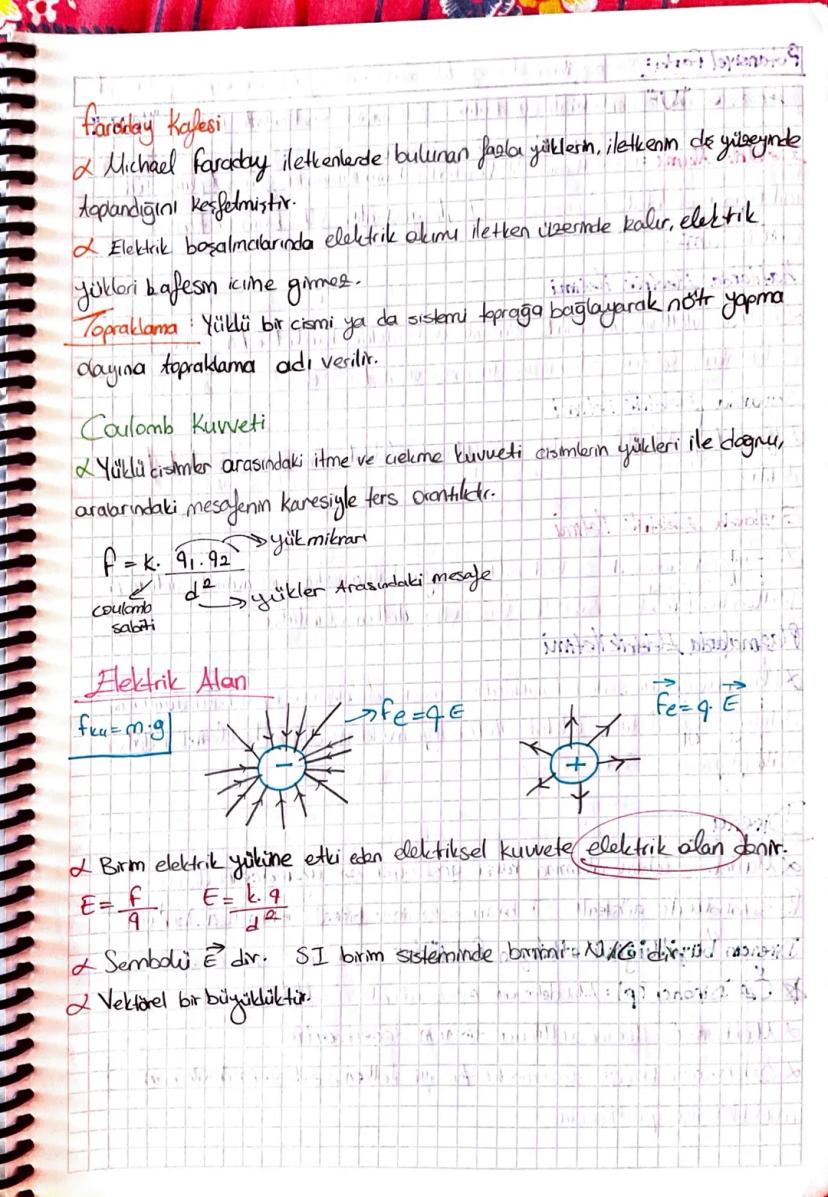 Faraday Kafesi
α Michael Faraday iletkenlerde bulunan fazla yüklerin, iletkenin dış yüzeyinde
toplandığını keşfetmiştir.
α Elektrik boşalmalarında elektrik akımı iletken üzerinde kalır, elektrik
yükleri kafesin içine girmez.
Topraklama : Yüklü bir cismi ya da sistemi toprağa bağlayarak nötr yapma
olayına topraklama adı verilir.
Coulomb Kuvveti
α Yüklü cisimler arasındaki itme ve çekme kuvveti cisimlerin yükleri ile doğru,
aralarındaki mesafenin karesiyle ters orantılıdır.
F = k. q₁.q₂ → yük mikrarı
d² → yükler Arasındaki mesafe
coulomb
sabiti
Elektrik Alan
→ Fe = q E
Fe = q. E
fku = m.g
−
+
α Birim elektrik yüküne etki eden elektiksel kuvvete elektrik alan denir.
E = F/q E = k.q/d²
α Sembolü E dir. SI birim sisteminde birimi = N/C dir.
α Vektörel bir büyüklüktür.